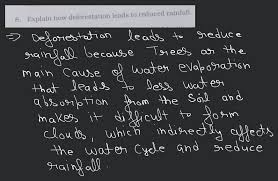 6. Explain how deforestation leads to reduced rainfall.
⇒ Deforestation leads to reduce
rainfall because Trees ar the
main Cause of water evaporation
that leads to less water
absorption from the Soil and
makes it difficult to form
clouds, which indirectly affects
the water Cycle and reduce
rainfall.